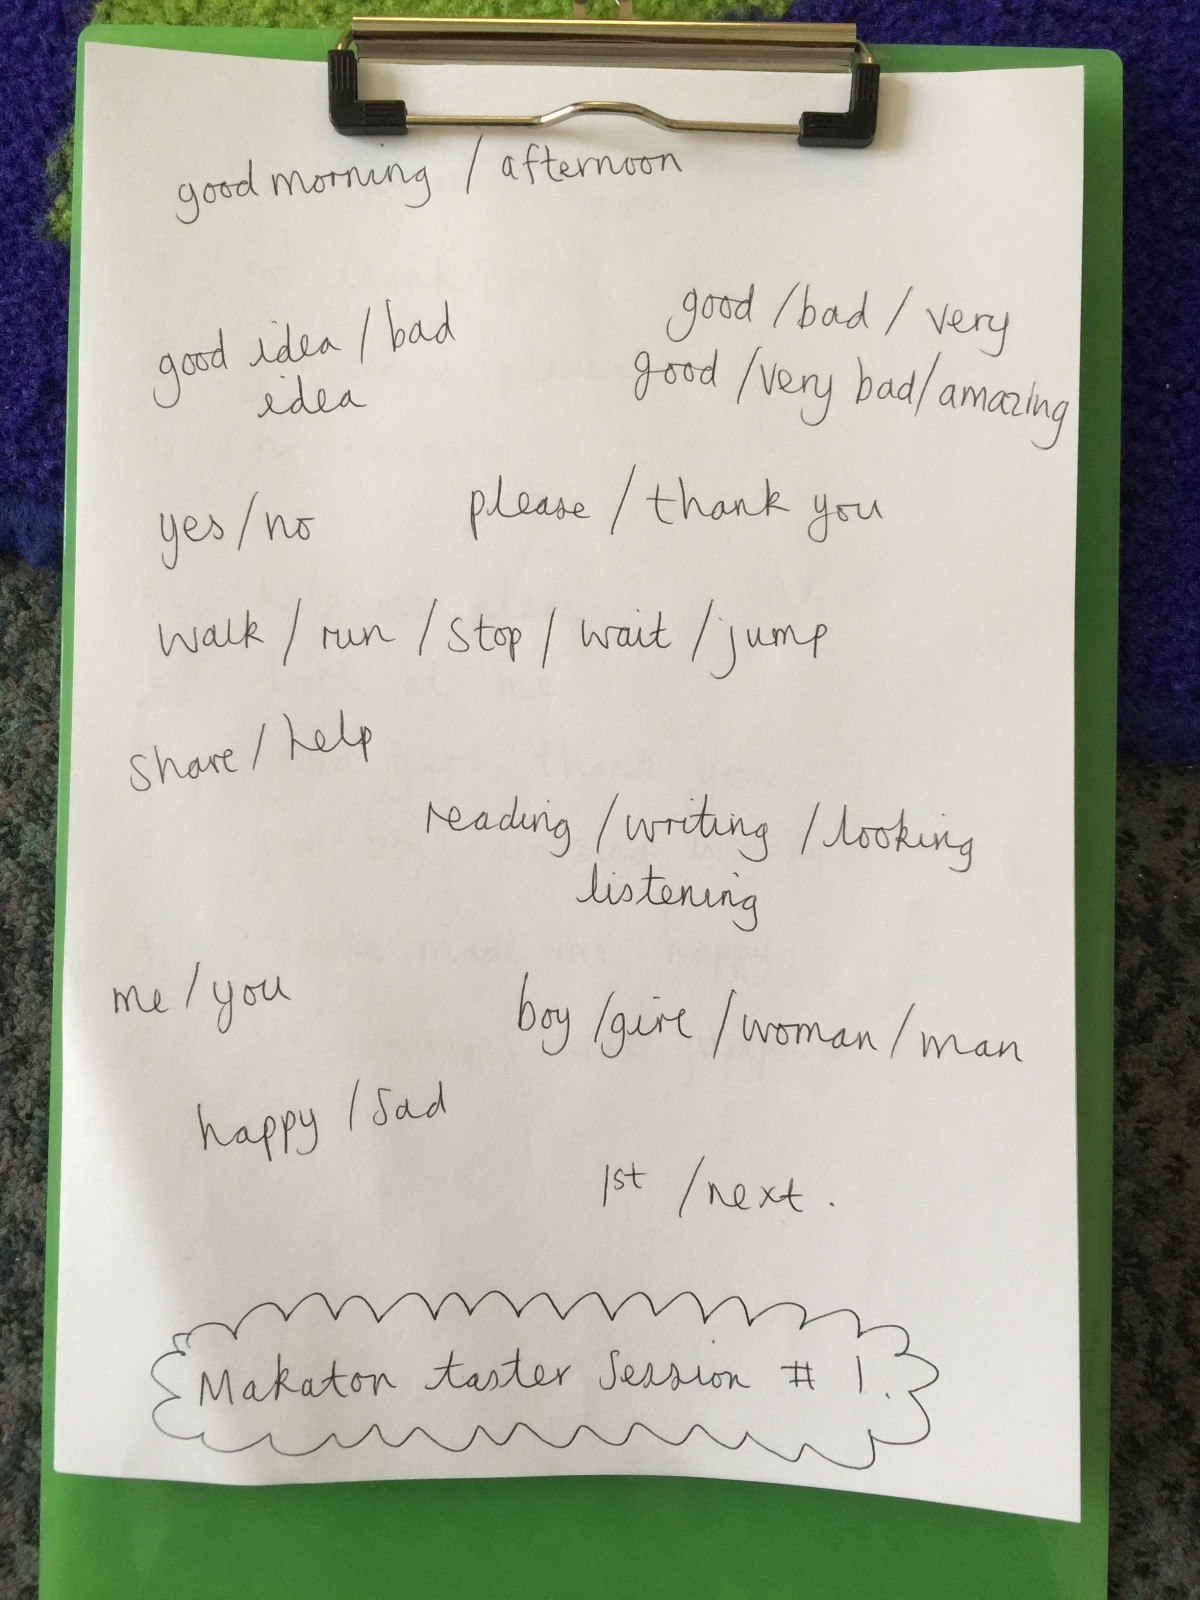 good morning / afternoon
good idea / bad
idea
good / bad / very
good / very bad / amazing
yes / no
please / thank you
walk / run / stop / wait / jump
share / help
reading / writing / looking
listening
me / you
boy / girl / woman / man
happy / sad
1st / next .
Makaton taster session # 1.